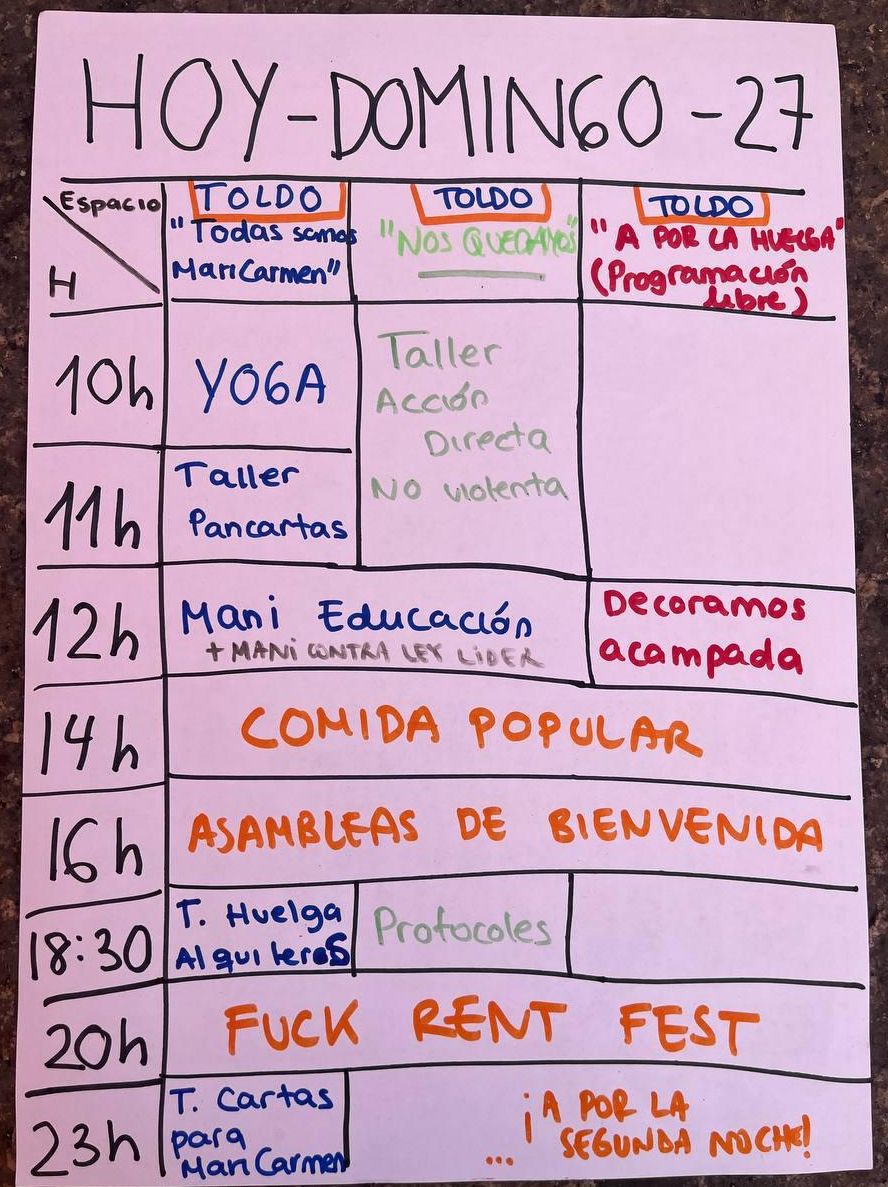 HOY-DOMINGO-27
Espacio
H
TOLDO
"Todas somos
MariCarmen"
TOLDO
"NOS QUEDAMOS"
TOLDO
"A POR LA HUELGA"
(Programación
libre)
10h
YOGA
Taller
Acción
Directa
No violenta
11h
Taller
Pancartas
12h
Mani Educación
+ MANI CONTRA LEY LIDER
Decoramos
acampada
14h
COMIDA POPULAR
16h
ASAMBLEAS DE BIENVENIDA
18:30
T. Huelga
Alquileres
Protocoles
20h
FUCK RENT FEST
23h
T. Cartas
para
MariCarmen
¡A POR LA
... SEGUNDA NOCHE!